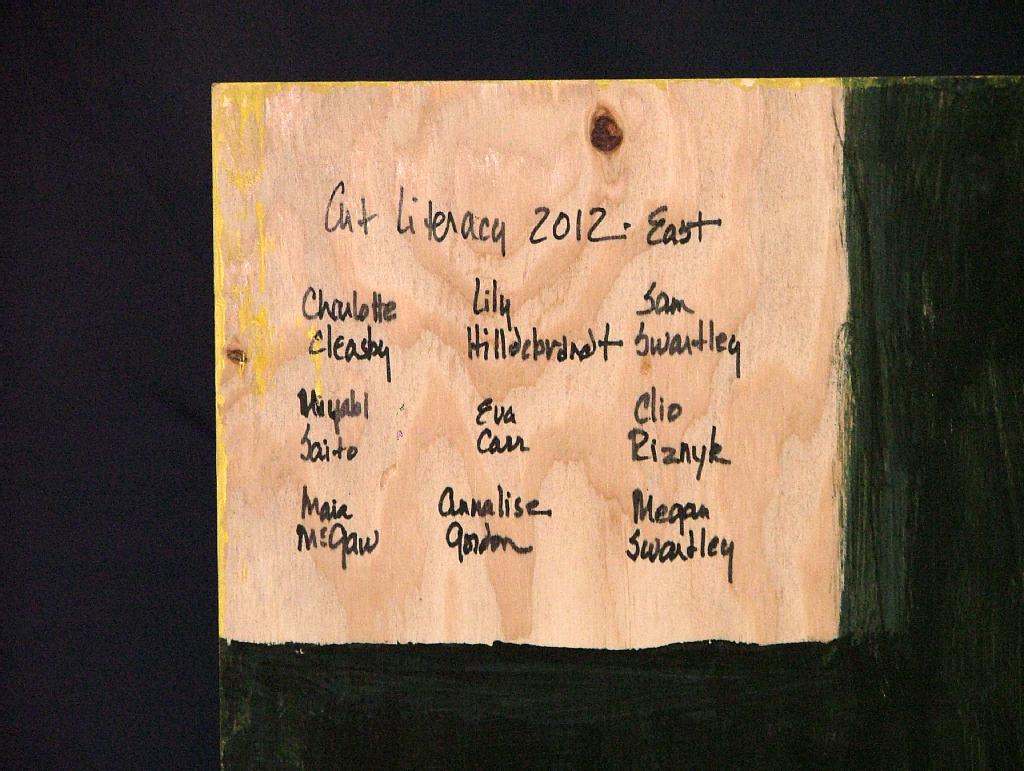 Art Literacy 2012 - East
Charlotte Lily Sam
Cleasby Hilldebrandt Swartley
Miyabi Eva Clio
Saito Carr Riznyk
Maia Annalise Megan
McGaw Gordon Swartley